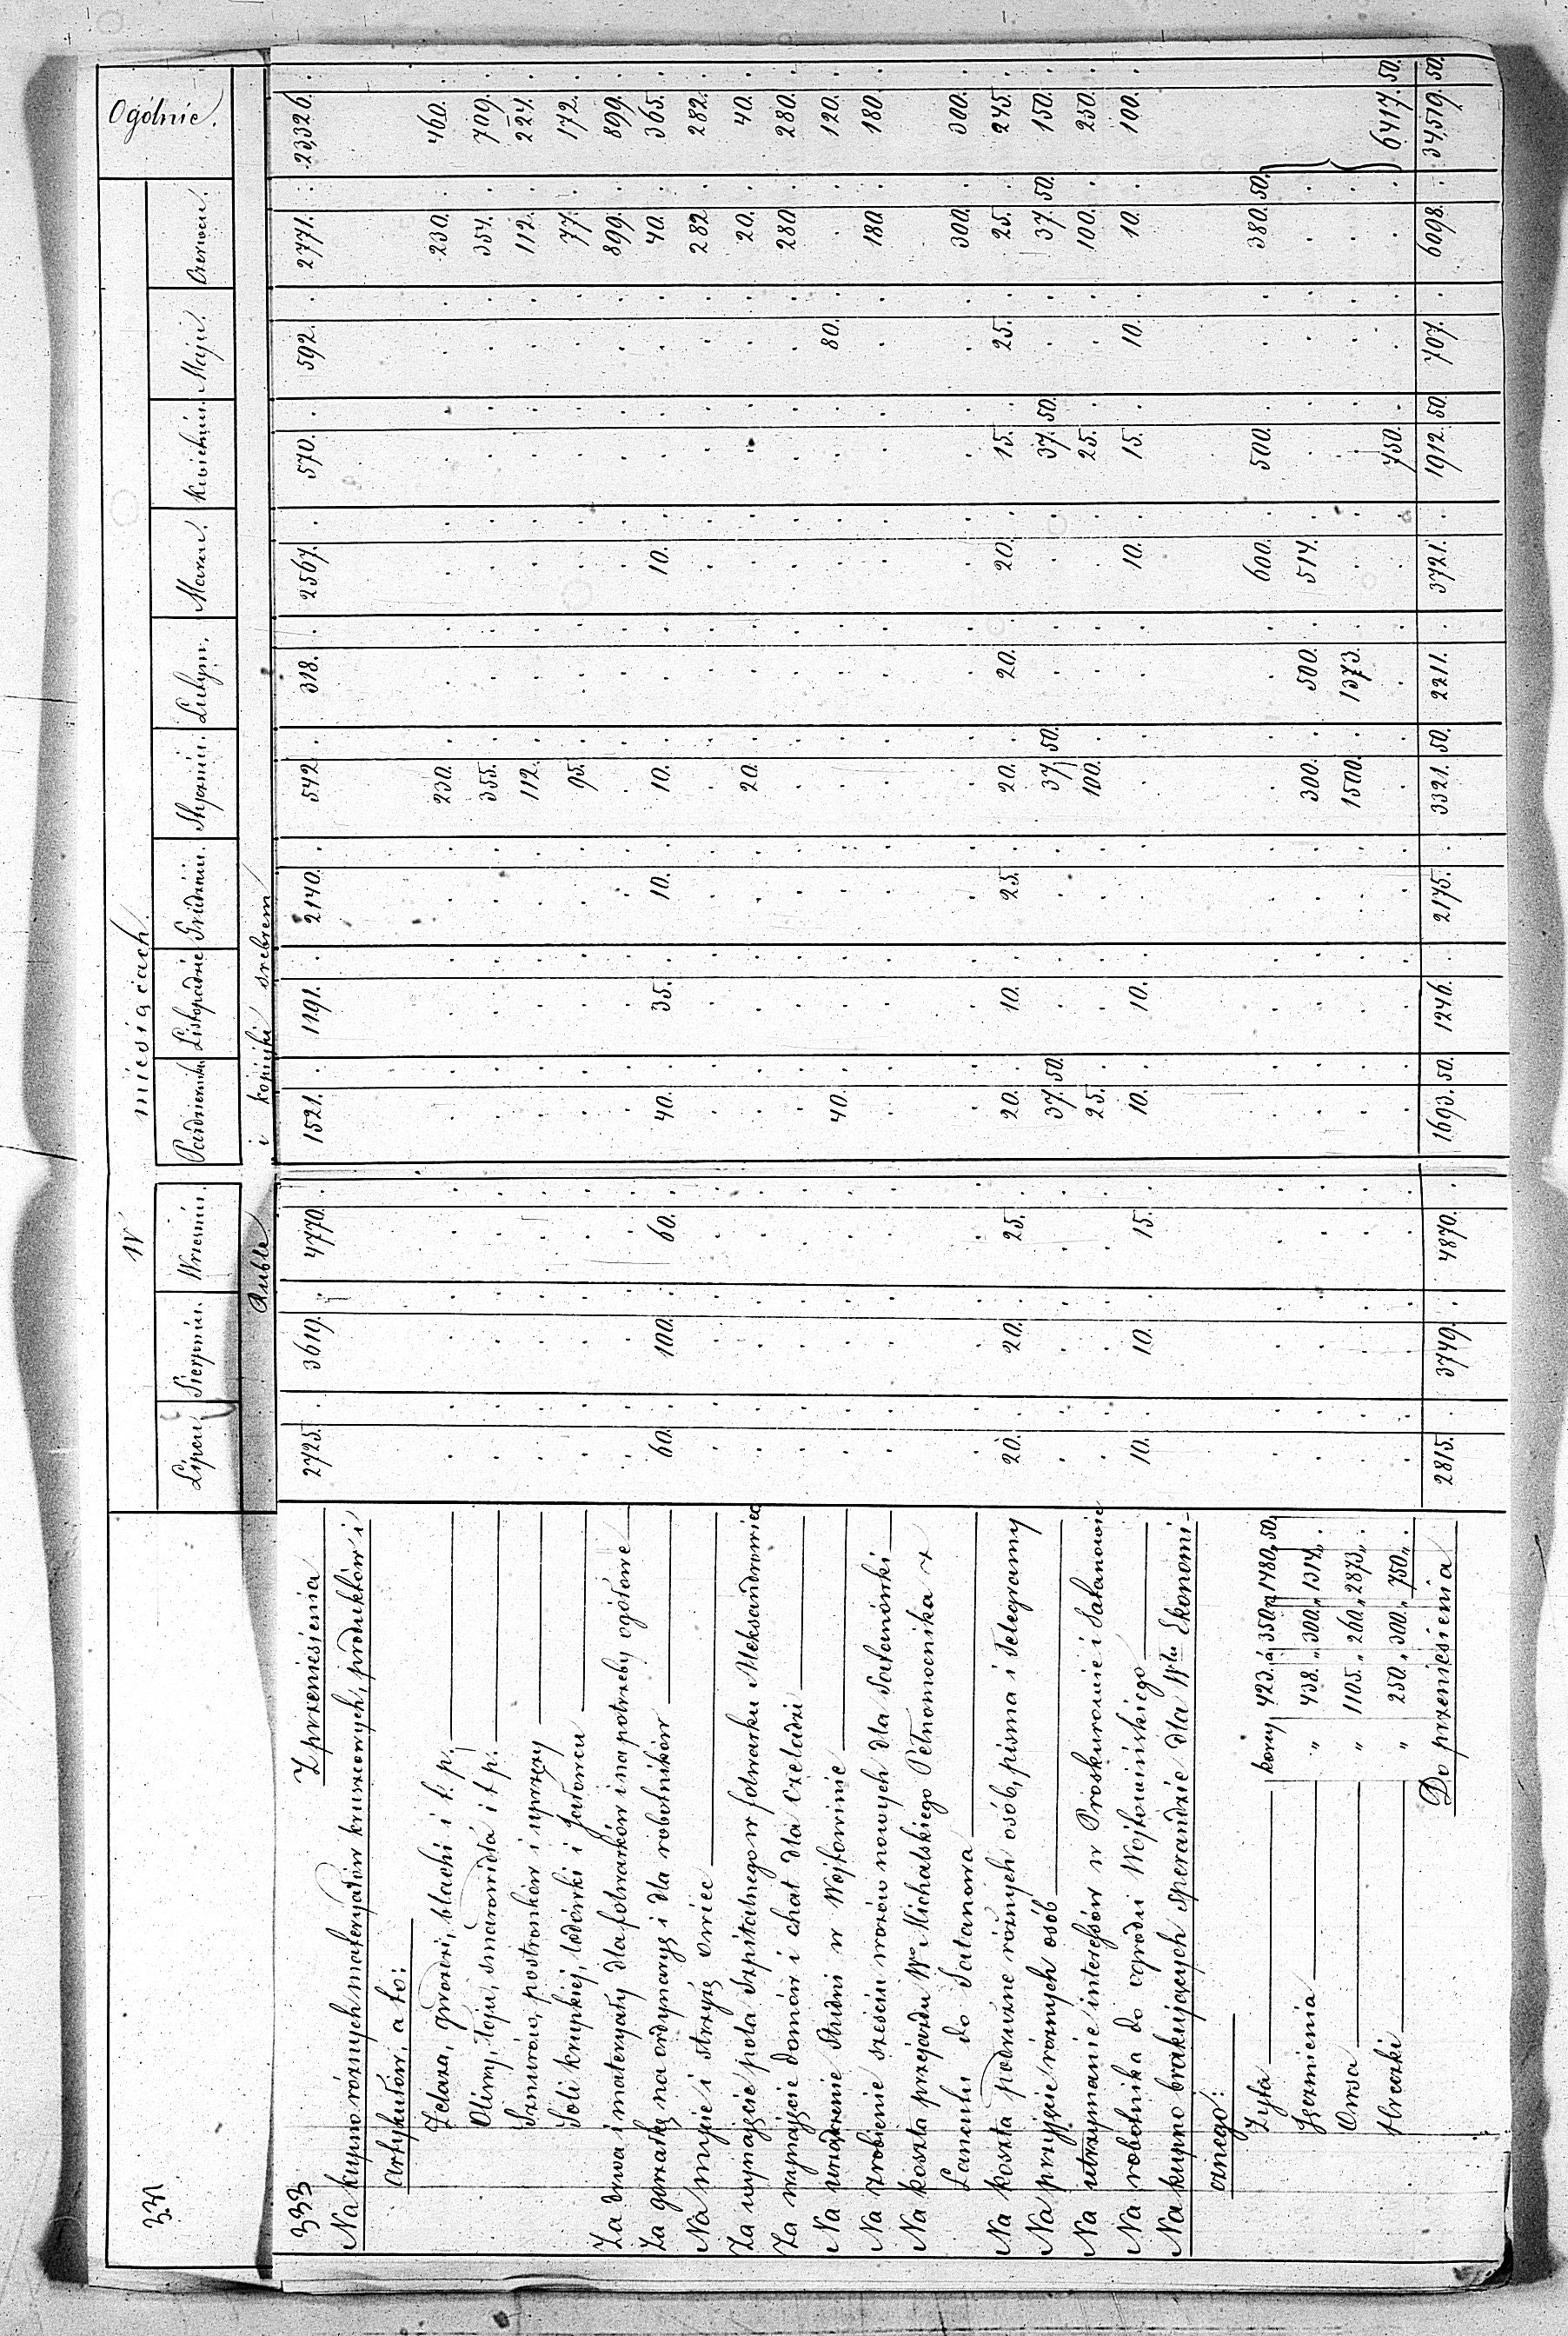 331
W miesiącach.
Ogólnie.
Lipcu Sierpniu. Wrześniu. Październiku Listopadzie Grudniu. Styczniu. Lutym. Marcu. Kwietniu. Maju. Czerwcu.
Ruble i kopiejki srebrem
333 Z przeniesienia 2725. 3619. 4770. 1521. 1191. 2140. 542. 318. 2567. 570. 592. 2771. 23,326.
Na kupno różnych materyałów kruszcowych, produktów i
artykułów, a to:
Żelaza, gwoździ, blachi i t. p. 230. 230. 460.
Oliwy, łoju, smarowidła i t p. 355. 354. 709.
Sznurow, postronków i uprzęży 112. 112. 224.
Soli krupkiej, lodówki i 95. 77. 172.
Za drwa i materyały dla folwarków i na potrzeby ogólowe 899. 899.
Za gorzałkę na ordynaryę i dla robotników 60. 100. 60. 40. 35. 10. 10. 10. 40. 365.
Na mycie i strzyżę owiec 282 282.
Za wynajęcie pola szpitalnego w folwarku Aleksandrowiec 20. 20. 40.
Za najęcie domów i chat dla czeladzi 280 280.
Na urządzenie studni w Wojtowinie 40. 80. 120.
Na zrobienie sześciu wozów nowych dla Satanówki 180 180.
Na koszta przejazdu Wo Michalskiego Pełnomocnika z
Łancutu do Satanowa 300. 300.
Na koszta podróżne różnych osób, pisma i telegramy 20. 20. 25. 20. 10. 25. 20. 20. 20. 15. 25. 25. 245.
Na przyjęcie różnych osób 37. 50. 37. 50. 37. 50. 37. 50. 150.
Na utrzymanie interessów w Proskurowie i Satanowie 25. 100. 25. 100. 250.
Na robotnika do ogrodu Wojtowińskiego 10. 10. 15. 10. 10. 10. 15. 10. 10. 100.
Na kupno brakujących sperandzie dla Wtu Ekonomi-
cznego:
Żyta korcy 423. á 350. „ 1480, 50. 600. 500. 380. 50.
Jęczmienia „ 438. „ 300. „ 1314 „. 300. 500. 514.
Owsa „ 1105. „ 260. „ 2873 „. 1500. 1373.
Hreczki „ 250. „ 300. „ 750 „. 750. 6417. 50.
Do przeniesienia 2815. 3749. 4870. 1693. 50. 1246. 2175. 3321. 50. 2211. 3721. 1912. 50. 707. 6098. 34,519. 50.